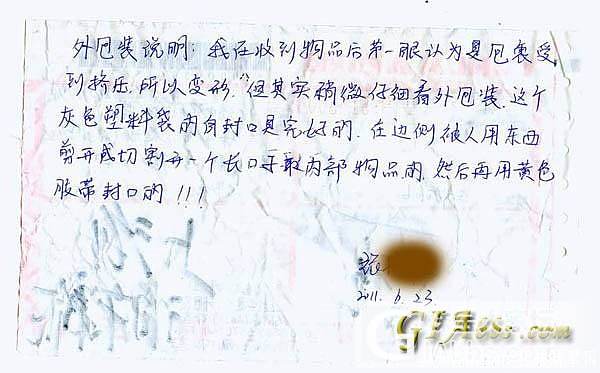 外包装说明：我在收到物品后第一眼认为是包裹受
到挤压，所以变形，但其实稍微仔细看外包装，这个
灰色塑料袋的自封口是完好的，在边侧被人用东西
剪开或切割开一个长口子取内部物品的，然后再用黄色
胶带封口的！！！
张
2011. 6. 23.